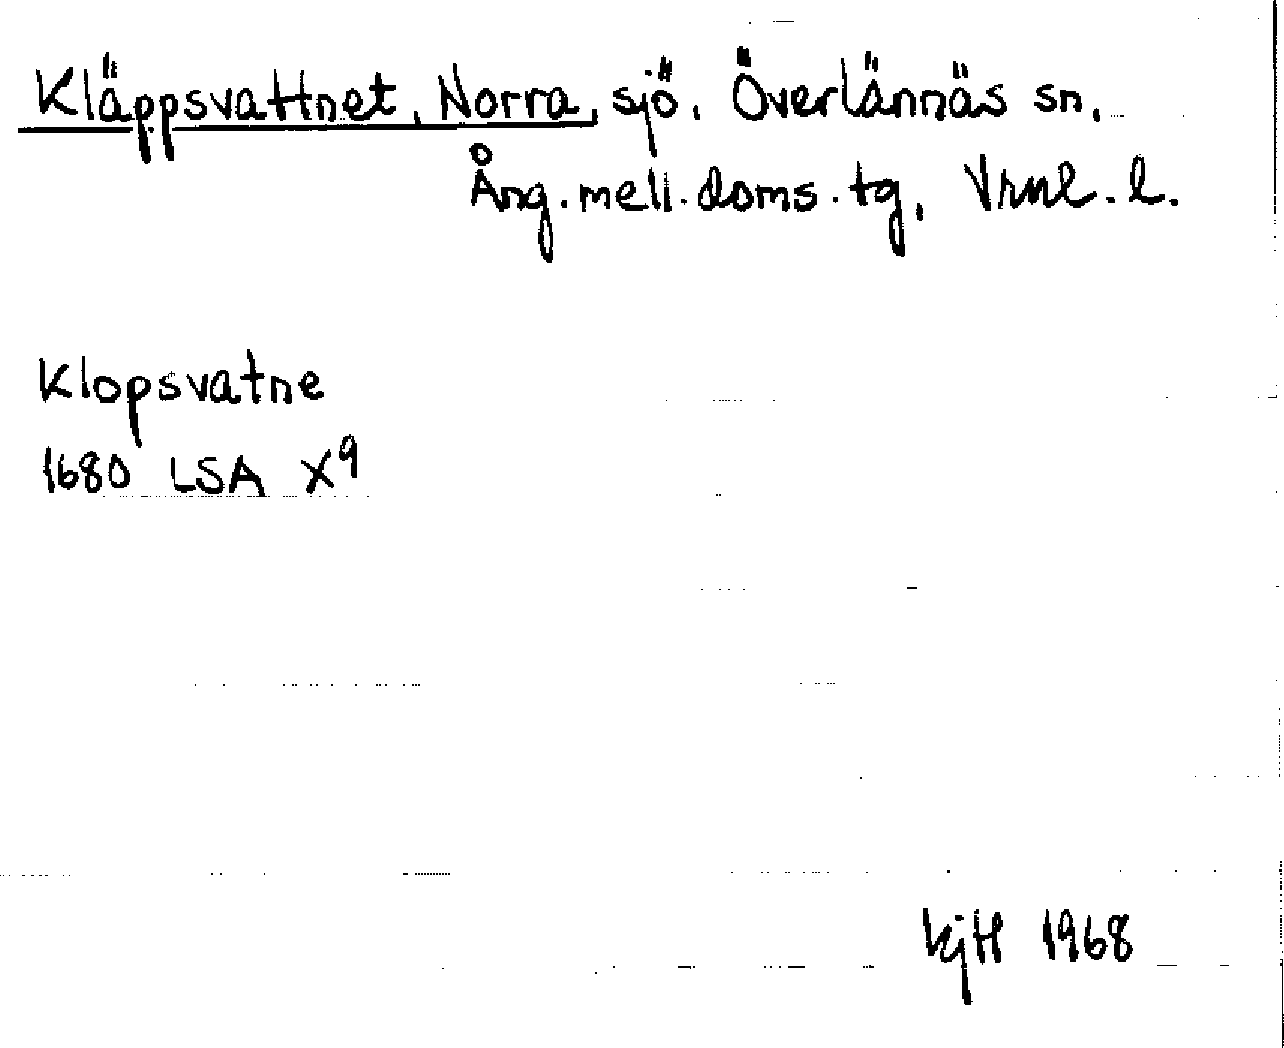 Kläppsvattnet, Norra, sjö. Överlännäs sn.
Ång. mell. doms. tg, Vrnl. l.
Klopsvatne
1680 LSA X9
KjH 1968